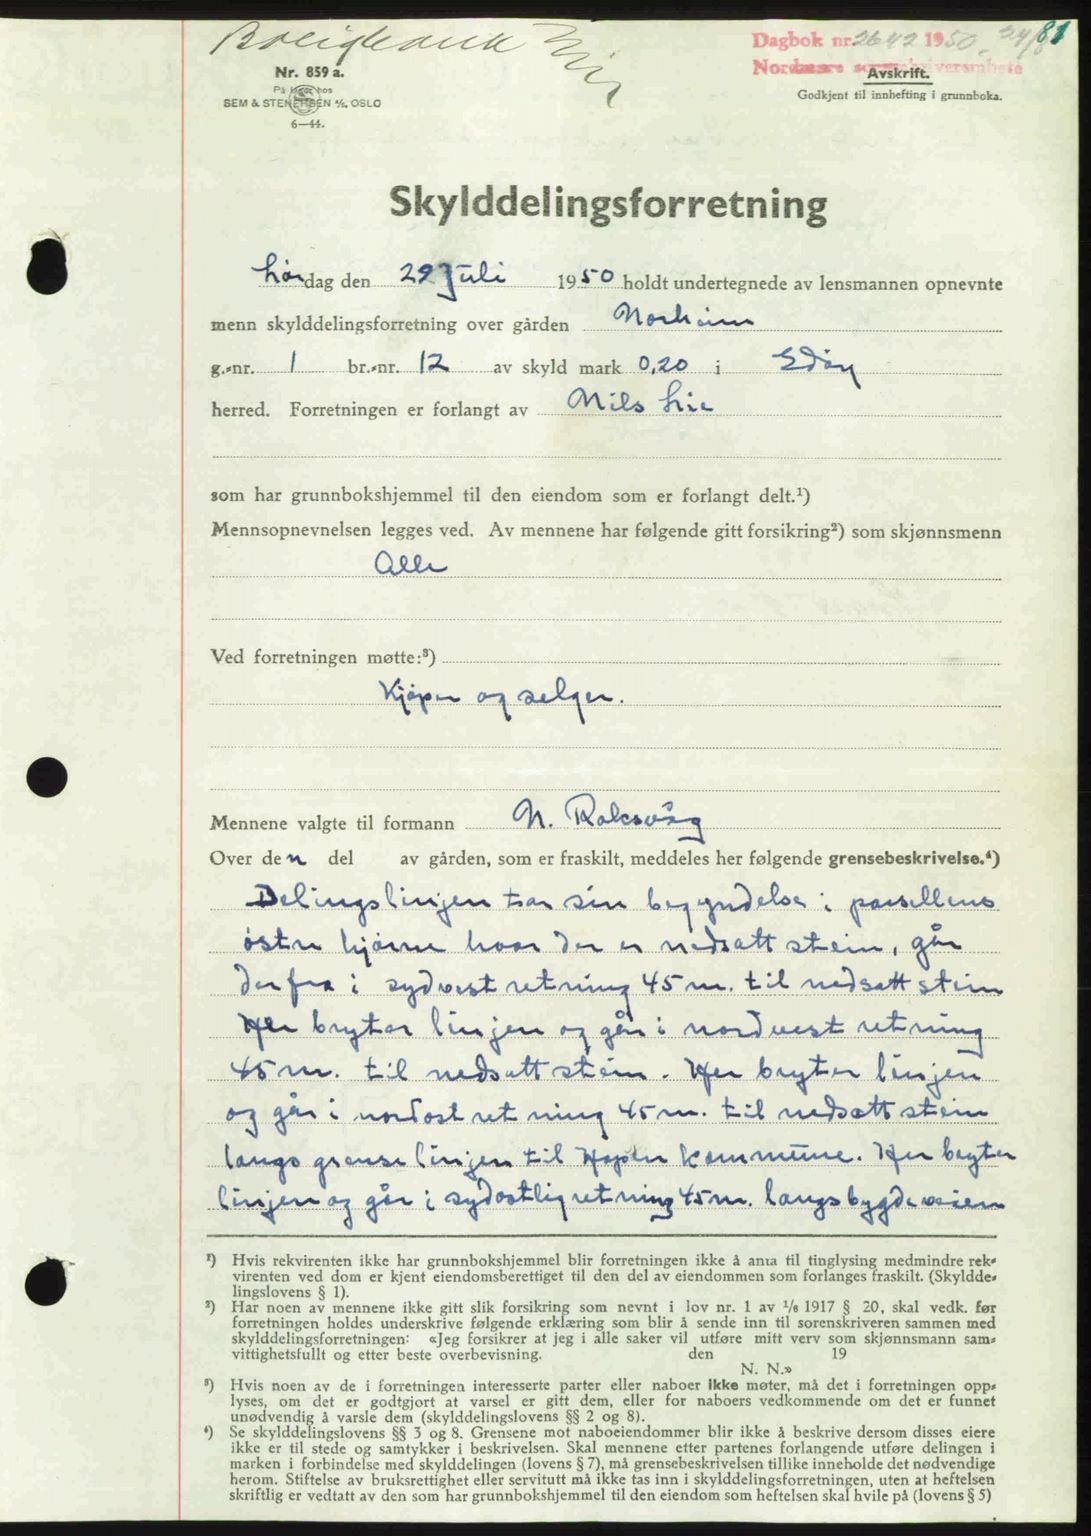 Boligbank
Dagbok nr. 2642 1950, 24/8 81
Nordmøre sorenskriverembete
Nr. 859 a.
På lager hos
SEM & STENERSEN A/S, OSLO
6—44.
Avskrift.
Godkjent til innhefting i grunnboka.
Skylddelingsforretning
Lørdag den 29 Juli 1950 holdt undertegnede av lensmannen opnevnte
menn skylddelingsforretning over gården Norheim
g.-nr. 1 br.-nr. 12 av skyld mark 0,20 i Edøy
herred. Forretningen er forlangt av Nils Lie
som har grunnbokshjemmel til den eiendom som er forlangt delt.¹)
Mennsopnevnelsen legges ved. Av mennene har følgende gitt forsikring²) som skjønnsmenn
Alle
Ved forretningen møtte:³)
Kjøper og selger.
Mennene valgte til formann N. Roksvåg
Over den del av gården, som er fraskilt, meddeles her følgende grensebeskrivelse.⁴)
Delingslinjen tar sin begyndelse i parsellens
østre hjørne hvor der er nedsatt stein, går
derfra i sydvest retning 45 m. til nedsatt stein
Her bryter linjen og går i nordvest retning
45 m. til nedsatt stein. Her bryter linjen
og går i nordost retning 45 m. til nedsatt stein
langs grenselinjen til Hopen kommune. Her bryter
linjen og går i sydostlig retning 45 m. langs bygdeveien
¹) Hvis rekvirenten ikke har grunnbokshjemmel blir forretningen ikke å anta til tinglysing medmindre rek-
virenten ved dom er kjent eiendomsberettiget til den del av eiendommen som forlanges fraskilt. (Skyldde-
lingslovens § 1).
²) Har noen av mennene ikke gitt slik forsikring som nevnt i lov nr. 1 av 1/6 1917 § 20, skal vedk. før
forretningen holdes underskrive følgende erklæring som blir å sende inn til sorenskriveren sammen med
skylddelingsforretningen: «Jeg forsikrer at jeg i alle saker vil utføre mitt verv som skjønnsmann sam-
vittighetsfullt og etter beste overbevisning. den 19
N. N.»
³) Hvis noen av de i forretningen interesserte parter eller naboer ikke møter, må det i forretningen opp-
lyses, om det er godtgjort at varsel er gitt dem, eller for naboers vedkommende om det er funnet
unødvendig å varsle dem (skylddelingslovens §§ 2 og 8).
⁴) Se skylddelingslovens §§ 3 og 8. Grensene mot naboeiendommer blir ikke å beskrive dersom disses eiere
ikke er til stede og samtykker i beskrivelsen. Skal mennene etter partenes forlangende utføre delingen i
marken i forbindelse med skylddelingen (lovens § 7), må grensebeskrivelsen tillike inneholde det nødvendige
herom. Stiftelse av bruksrettighet eller servitutt må ikke tas inn i skylddelingsforretningen, uten at heftelsen
skriftlig er vedtatt av den som har grunnbokshjemmel til den eiendom som heftelsen skal hvile på (lovens § 5)